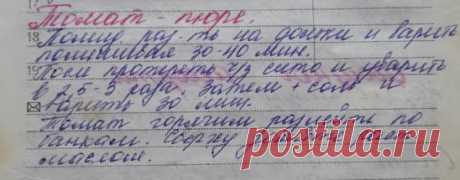 Томат-пюре.
18 Помид. раз-ть на дольки и варить
30-40 мин.
19 После протереть ч/з сито и уварить
в 2,5-3 раза. Затем + соль и
варить 30 мин.
Томат горячим разлить по
банкам. Сверху
маслом.
posta-magazine.ru